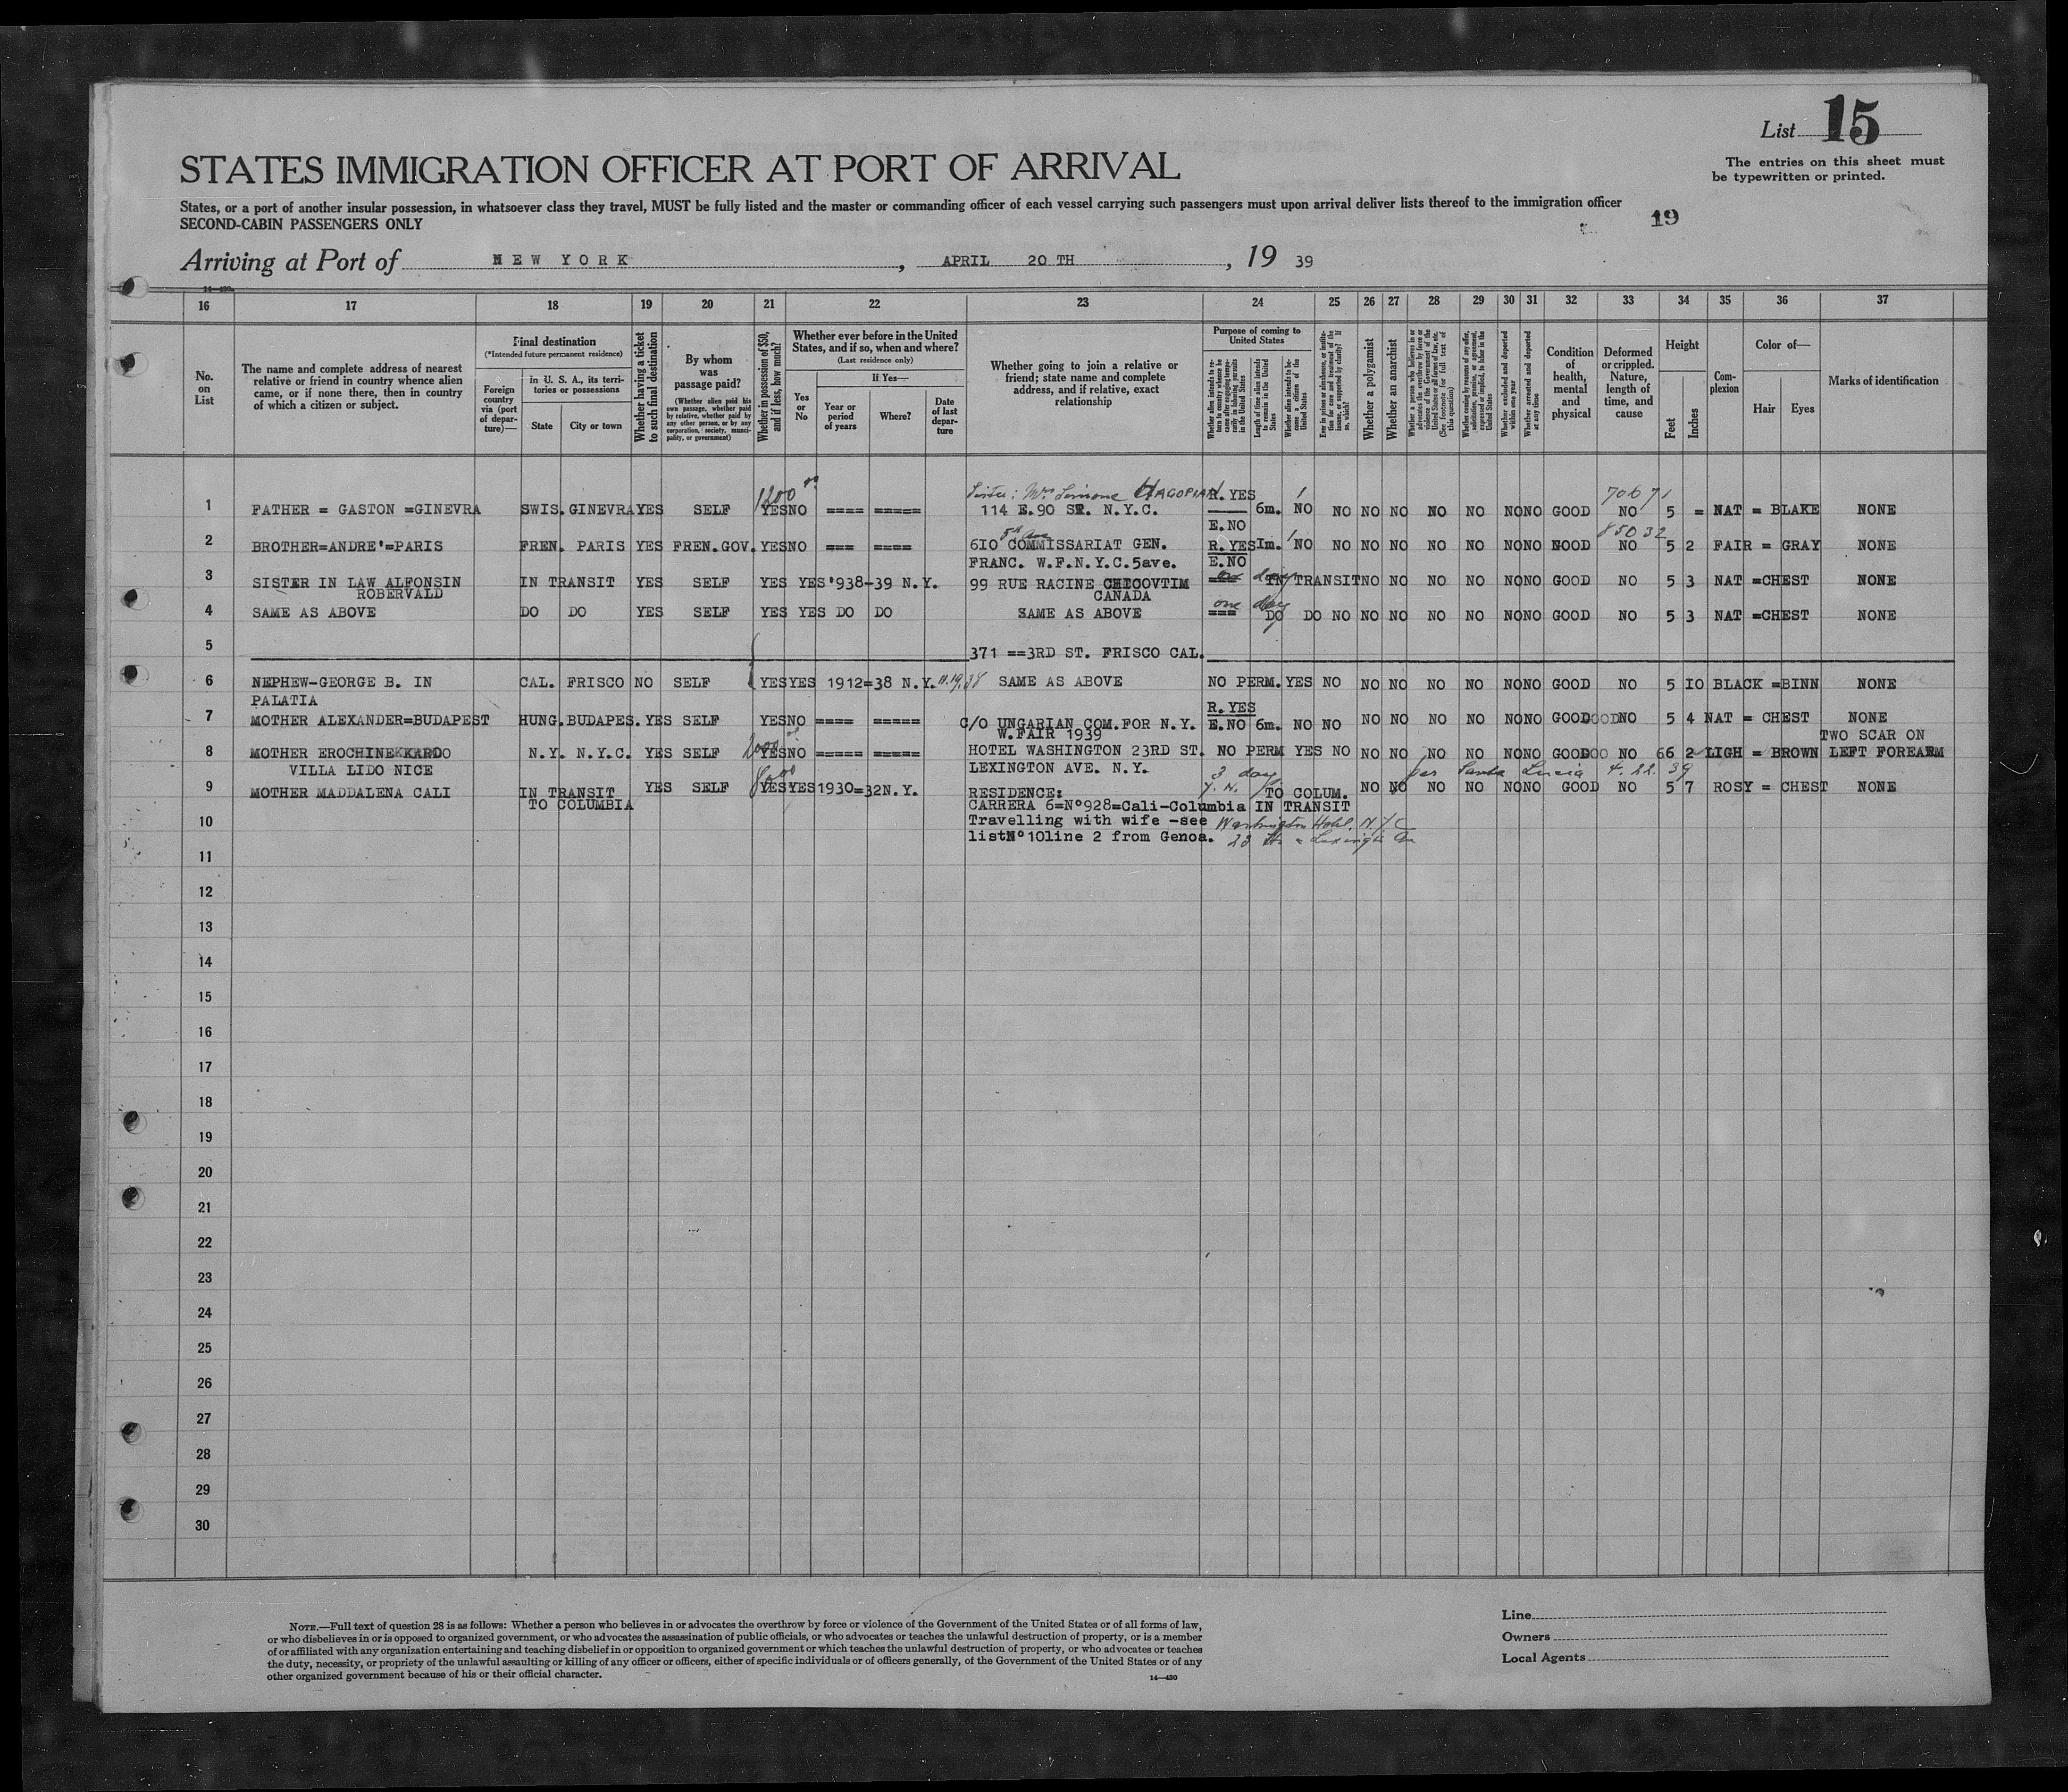 List 15
The entries on this sheet must
be typewritten or printed.
STATES IMMIGRATION OFFICER AT PORT OF ARRIVAL
States, or a port of another insular possession, in whatsoever class they travel, MUST be fully listed and the master or commanding officer of each vessel carrying such passengers must upon arrival deliver lists thereof to the immigration officer
SECOND-CABIN PASSENGERS ONLY
19
Arriving at Port of NEW YORK, APRIL 20 TH, 19 39
16 17 18 19 20 21 22 23 24 25 26 27 28 29 30 31 32 33 34 35 36 37
No. on List
The name and complete address of nearest relative or friend in country whence alien came, or if none there, then in country of which a citizen or subject.
Final destination
(*Intended future permanent residence)
Foreign country via (port of departure)—
in U. S. A., its territories or possessions
State
City or town
Whether having a ticket to such final destination
By whom was passage paid?
(Whether alien paid his own passage, whether paid by relative, whether paid by any other person, or by any corporation, society, municipality, or government)
Whether in possession of $50, and if less, how much?
Whether ever before in the United States, and if so, when and where?
(Last residence only)
Yes or No
If Yes—
Year or period of years
Where?
Date of last departure
Whether going to join a relative or friend; state name and complete address, and if relative, exact relationship
Purpose of coming to United States
Whether alien intends to return to country whence he came after engaging temporarily in laboring pursuits in the United States
Length of time alien intends to remain in the United States
Whether alien intends to become a citizen of the United States
Ever in prison or almshouse, or institution for care and treatment of the insane, or supported by charity? If so, which?
Whether a polygamist
Whether an anarchist
Whether a person who believes in or advocates the overthrow by force or violence of the Government of the United States or all forms of law, etc. (See footnote for full text of this question)
Whether coming by reasons of any offer, solicitation, promise, or agreement, expressed or implied, to labor in the United States
Whether excluded and deported within one year
Whether arrested and deported at any time
Condition of health, mental and physical
Deformed or crippled. Nature, length of time, and cause
Height
Feet
Inches
Complexion
Color of—
Hair
Eyes
Marks of identification
1200 Sister: Mrs Simone HAGOPIAN 70671
1 FATHER = GASTON =GINEVRA SWIS. GINEVRA YES SELF YES NO ==== ===== 114 E.90 ST. N.Y.C. R.YES E.NO 6m. NO NO NO NO NO NO NO NO GOOD NO 5 = NAT = BLAKE NONE
5th Ave 85032
2 BROTHER=ANDRE'=PARIS FREN. PARIS YES FREN.GOV. YES NO === ==== 6IO COMMISSARIAT GEN. R.YES Im. NO NO NO NO NO NO NO NO GOOD NO 5 2 FAIR = GRAY NONE
FRANC. W.F.N.Y.C.5ave. E.NO
3 SISTER IN LAW ALFONSIN IN TRANSIT YES SELF YES YES '938-39 N.Y. 99 RUE RACINE CHICOVTIM one day IN TRANSIT NO NO NO NO NO NO GOOD NO 5 3 NAT =CHEST NONE
ROBERVALD CANADA
4 SAME AS ABOVE DO DO YES SELF YES YES DO DO SAME AS ABOVE one day === DO DO NO NO NO NO NO NO NO GOOD NO 5 3 NAT =CHEST NONE
5 371 ==3RD ST. FRISCO CAL.
6 NEPHEW-GEORGE B. IN CAL. FRISCO NO SELF YES YES 1912=38 N.Y. 11.19.38 SAME AS ABOVE NO PERM. YES NO NO NO NO NO NO NO GOOD NO 5 IO BLACK =BINN NONE
PALATIA R.YES
7 MOTHER ALEXANDER=BUDAPEST HUNG. BUDAPES. YES SELF YES NO ==== ===== C/O UNGARIAN COM.FOR N.Y. E.NO 6m. NO NO NO NO NO NO NO NO GOOD NO 5 4 NAT = CHEST NONE
W.FAIR 1939 TWO SCAR ON
8 MOTHER EROCHINE KARDO N.Y. N.Y.C. YES SELF 2000 YES NO ===== ===== HOTEL WASHINGTON 23RD ST. NO PERM YES NO NO NO NO NO NO NO GOOD NO 66 2 LIGH = BROWN LEFT FOREARM
VILLA LIDO NICE LEXINGTON AVE. N.Y. 3 day per Santa Lucia 4.22.39
9 MOTHER MADDALENA CALI IN TRANSIT YES SELF YES YES 1930=32 N.Y. RESIDENCE: TO COLUM. NO NO NO NO NO NO GOOD NO 5 7 ROSY = CHEST NONE
TO COLUMBIA CARRERA 6=N°928=Cali-Columbia IN TRANSIT
10 Travelling with wife -see Washington Hotel, N.Y.C
listN°10line 2 from Genoa.
11
12
13
14
15
16
17
18
19
20
21
22
23
24
25
26
27
28
29
30
NOTE.—Full text of question 28 is as follows: Whether a person who believes in or advocates the overthrow by force or violence of the Government of the United States or of all forms of law,
or who disbelieves in or is opposed to organized government, or who advocates the assassination of public officials, or who advocates or teaches the unlawful destruction of property, or is a member
of or affiliated with any organization entertaining and teaching disbelief in or opposition to organized government or which teaches the unlawful destruction of property, or who advocates or teaches
the duty, necessity, or propriety of the unlawful assaulting or killing of any officer or officers, either of specific individuals or of officers generally, of the Government of the United States or of any
other organized government because of his or their official character.
14—430
Line
Owners
Local Agents